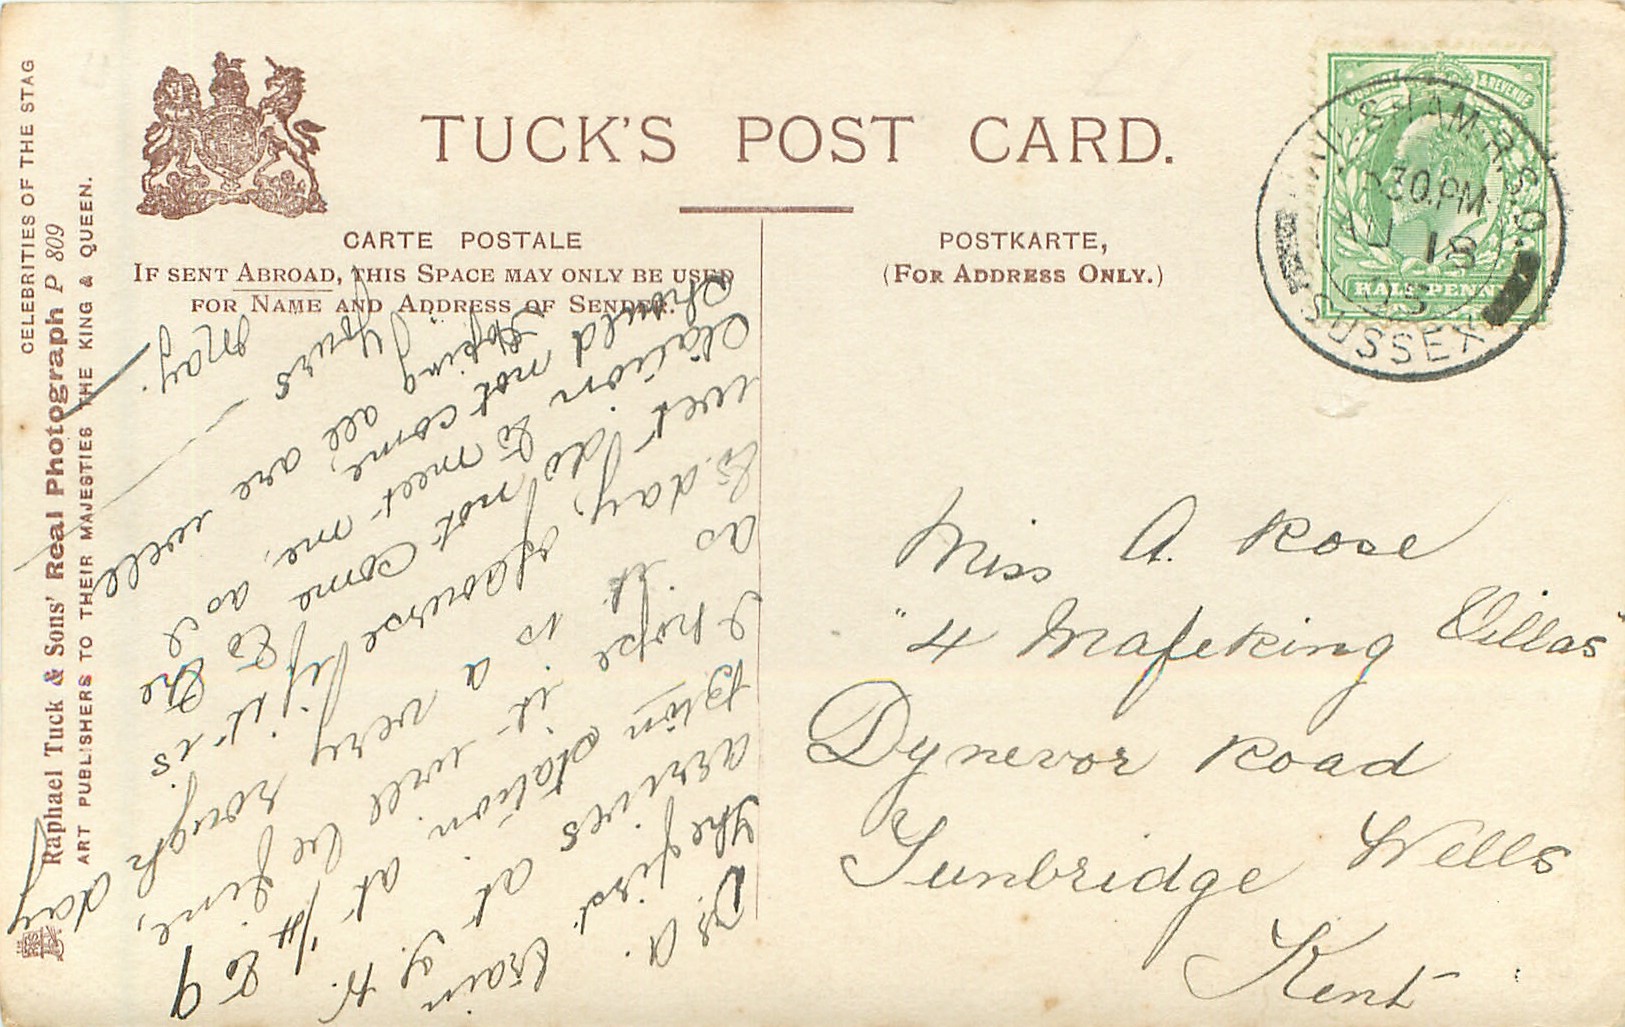 CELEBRITIES OF THE STAG
Raphael Tuck & Sons' Real Photograph P 809
ART PUBLISHERS TO THEIR MAJESTIES THE KING & QUEEN.
TUCK'S POST CARD.
CARTE POSTALE
IF SENT ABROAD, THIS SPACE MAY ONLY BE USED
FOR NAME AND ADDRESS OF SENDER.
POSTKARTE,
(FOR ADDRESS ONLY.)
POSTAGE & REVENUE
HALF PENNY
HAILSHAM R.S.O.
30.PM
18
05
SUSSEX
Dr. A.
The first train
arrives at
station at 1/4 to 9
I hope it will be fine,
as it is a very rough day
to-day, of course if it is
wet do not come to the
station to meet me, as I
should not come,
Hoping all are well
Yours
May.
Miss A. Rose
"4 Mafeking Villas"
Dynevor Road
Tunbridge Wells
Kent